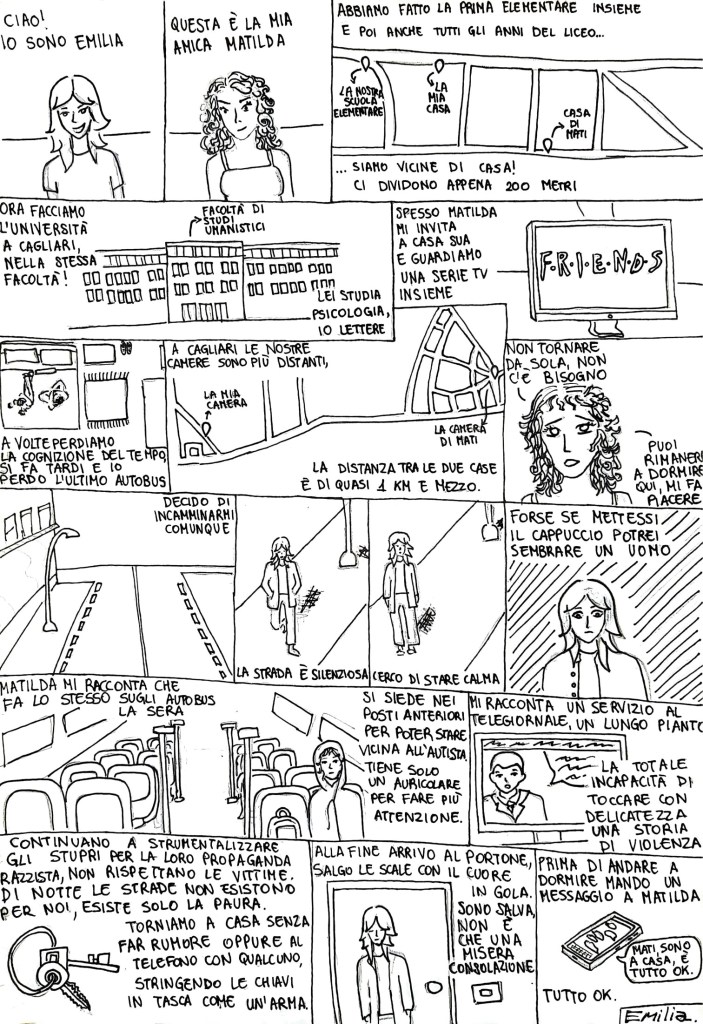 CIAO!
IO SONO EMILIA
QUESTA È LA MIA
AMICA MATILDA
ABBIAMO FATTO LA PRIMA ELEMENTARE INSIEME
E POI ANCHE TUTTI GLI ANNI DEL LICEO...
LA NOSTRA
SCUOLA
ELEMENTARE
LA
MIA
CASA
CASA
DI
MATI
... SIAMO VICINE DI CASA!
CI DIVIDONO APPENA 200 METRI
ORA FACCIAMO
L'UNIVERSITÀ
A CAGLIARI,
NELLA STESSA
FACOLTÀ!
FACOLTÀ DI
STUDI
UMANISTICI
LEI STUDIA
PSICOLOGIA,
IO LETTERE
SPESSO MATILDA
MI INVITA
A CASA SUA
E GUARDIAMO
UNA SERIE TV
INSIEME
F·R·I·E·N·D·S
A VOLTE PERDIAMO
LA COGNIZIONE DEL TEMPO,
SI FA TARDI E IO
PERDO L'ULTIMO AUTOBUS
A CAGLIARI LE NOSTRE
CAMERE SONO PIÙ DISTANTI,
LA MIA
CAMERA
LA CAMERA
DI MATI
LA DISTANZA TRA LE DUE CASE
È DI QUASI 1 KM E MEZZO.
NON TORNARE
DA SOLA, NON
C'È BISOGNO
PUOI
RIMANERE
A DORMIRE
QUI, MI FA
PIACERE
DECIDO DI
INCAMMINARMI
COMUNQUE
LA STRADA È SILENZIOSA
CERCO DI STARE CALMA
FORSE SE METTESSI
IL CAPPUCCIO POTREI
SEMBRARE UN UOMO
MATILDA MI RACCONTA CHE
FA LO STESSO SUGLI AUTOBUS
LA SERA
SI SIEDE NEI
POSTI ANTERIORI
PER POTER STARE
VICINA ALL'AUTISTA,
TIENE SOLO
UN AURICOLARE
PER FARE PIÙ
ATTENZIONE.
MI RACCONTA UN SERVIZIO AL
TELEGIORNALE, UN LUNGO PIANTO
LA TOTALE
INCAPACITÀ DI
TOCCARE CON
DELICATEZZA
UNA STORIA
DI VIOLENZA
CONTINUANO A STRUMENTALIZZARE
GLI STUPRI PER LA LORO PROPAGANDA
RAZZISTA, NON RISPETTANO LE VITTIME.
DI NOTTE LE STRADE NON ESISTONO
PER NOI, ESISTE SOLO LA PAURA.
TORNIAMO A CASA SENZA
FAR RUMORE OPPURE AL
TELEFONO CON QUALCUNO,
STRINGENDO LE CHIAVI
IN TASCA COME UN'ARMA.
ALLA FINE ARRIVO AL PORTONE,
SALGO LE SCALE CON IL CUORE
IN GOLA.
SONO SALVA,
NON È
CHE UNA
MISERA
CONSOLAZIONE
PRIMA DI ANDARE A
DORMIRE MANDO UN
MESSAGGIO A MATILDA
MATI, SONO
A CASA, È
TUTTO OK.
TUTTO OK.
EMILIA.